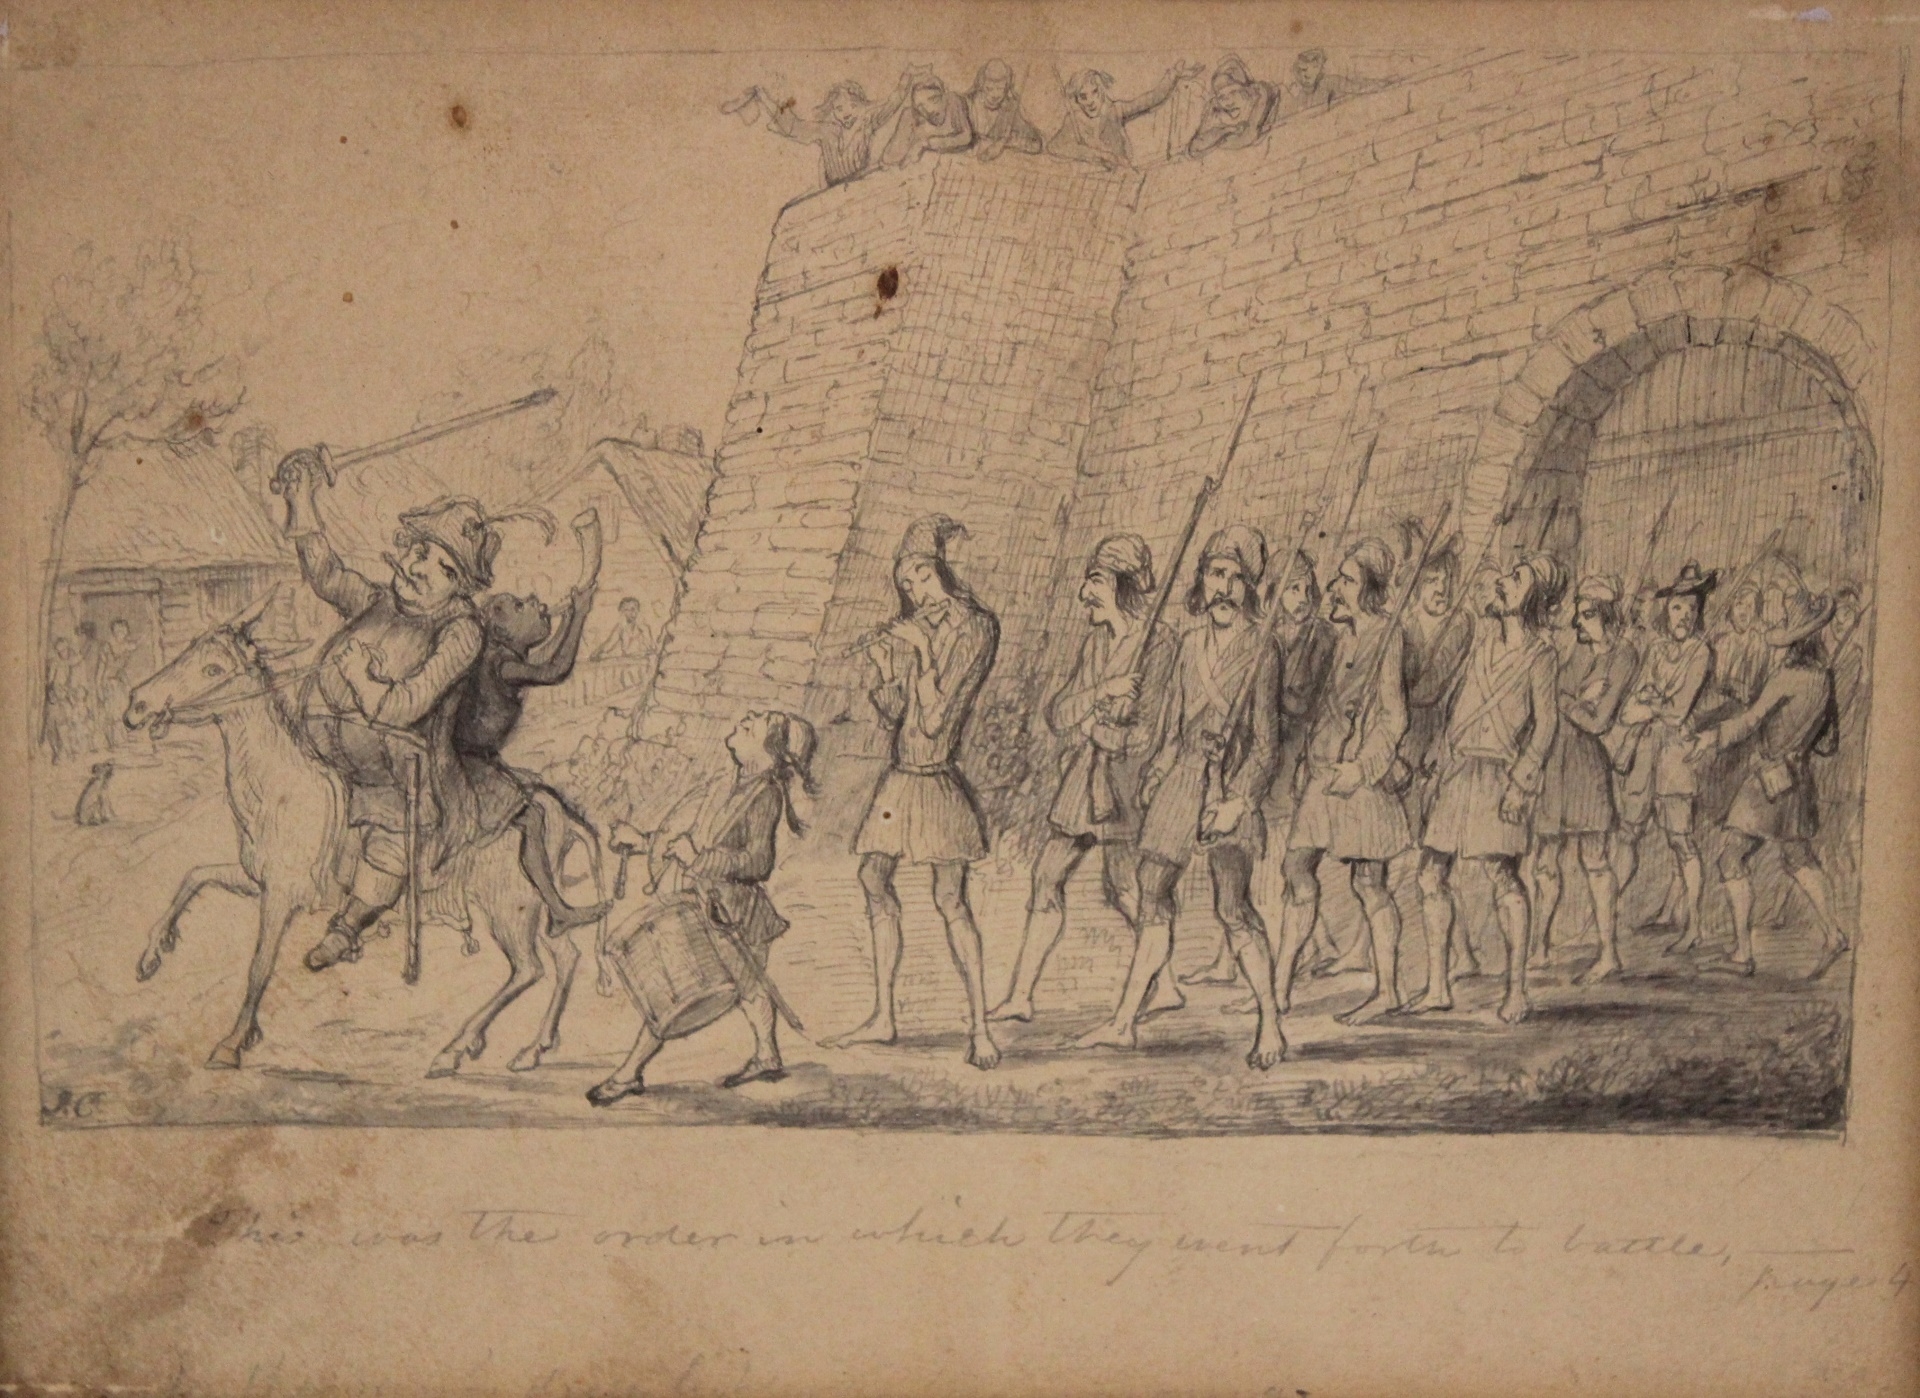 J.C.
This was the order in which they went forth to battle, —
page 4